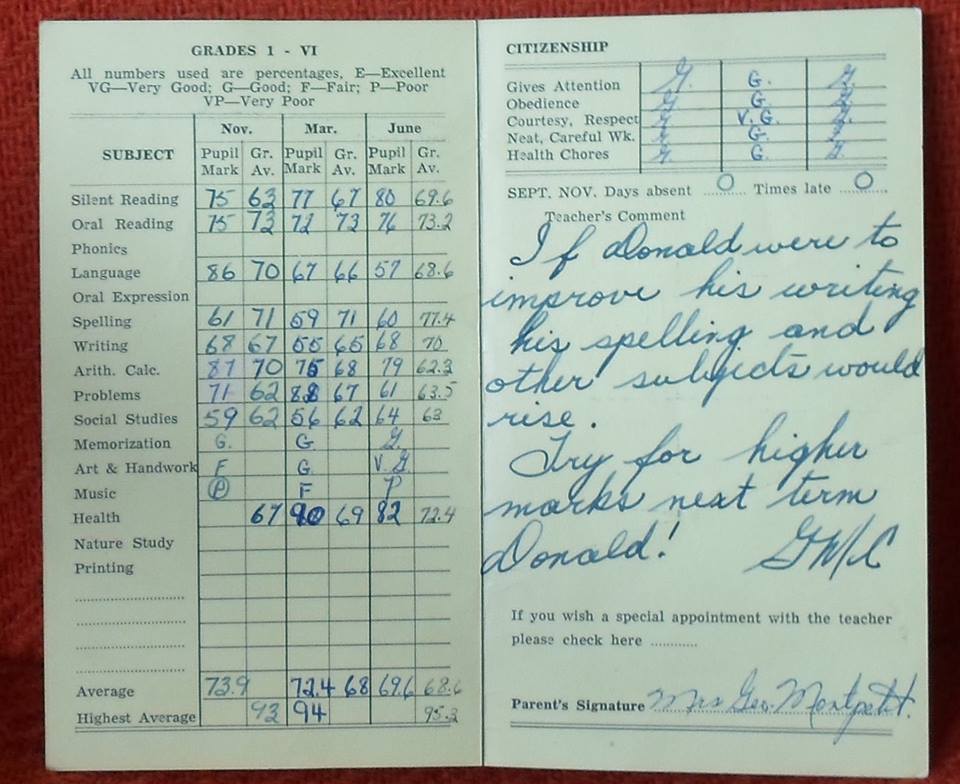 GRADES 1 - VI
All numbers used are percentages, E—Excellent
VG—Very Good; G—Good; F—Fair; P—Poor
VP—Very Poor
SUBJECT Nov. Mar. June
Pupil Mark Gr. Av. Pupil Mark Gr. Av. Pupil Mark Gr. Av.
Silent Reading 75 63 77 67 80 69.6
Oral Reading 75 73 72 73 76 73.2
Phonics
Language 86 70 67 66 57 68.6
Oral Expression
Spelling 61 71 59 71 60 77.4
Writing 68 67 55 65 68 70
Arith. Calc. 87 70 75 68 79 62.3
Problems 71 62 67 61 63.5
Social Studies 59 62 56 62 64 63
Memorization G. G G
Art & Handwork F G V G
Music P F P
Health 67 90 69 82 72.4
Nature Study
Printing
Average 73.9 72.4 68 69.6 68.6
Highest Average 93 94 95.3
CITIZENSHIP
Gives Attention G. G. G
Obedience G G G
Courtesy, Respect V.G. G.
Neat, Careful Wk. G G
Health Chores G. G. G.
SEPT. NOV. Days absent 0 Times late 0
Teacher's Comment
If Donald were to
improve his writing
his spelling and
other subjects would
rise.
Try for higher
marks next term
Donald! GMC
If you wish a special appointment with the teacher
please check here
Parent's Signature Mrs Geo. Montpetit.